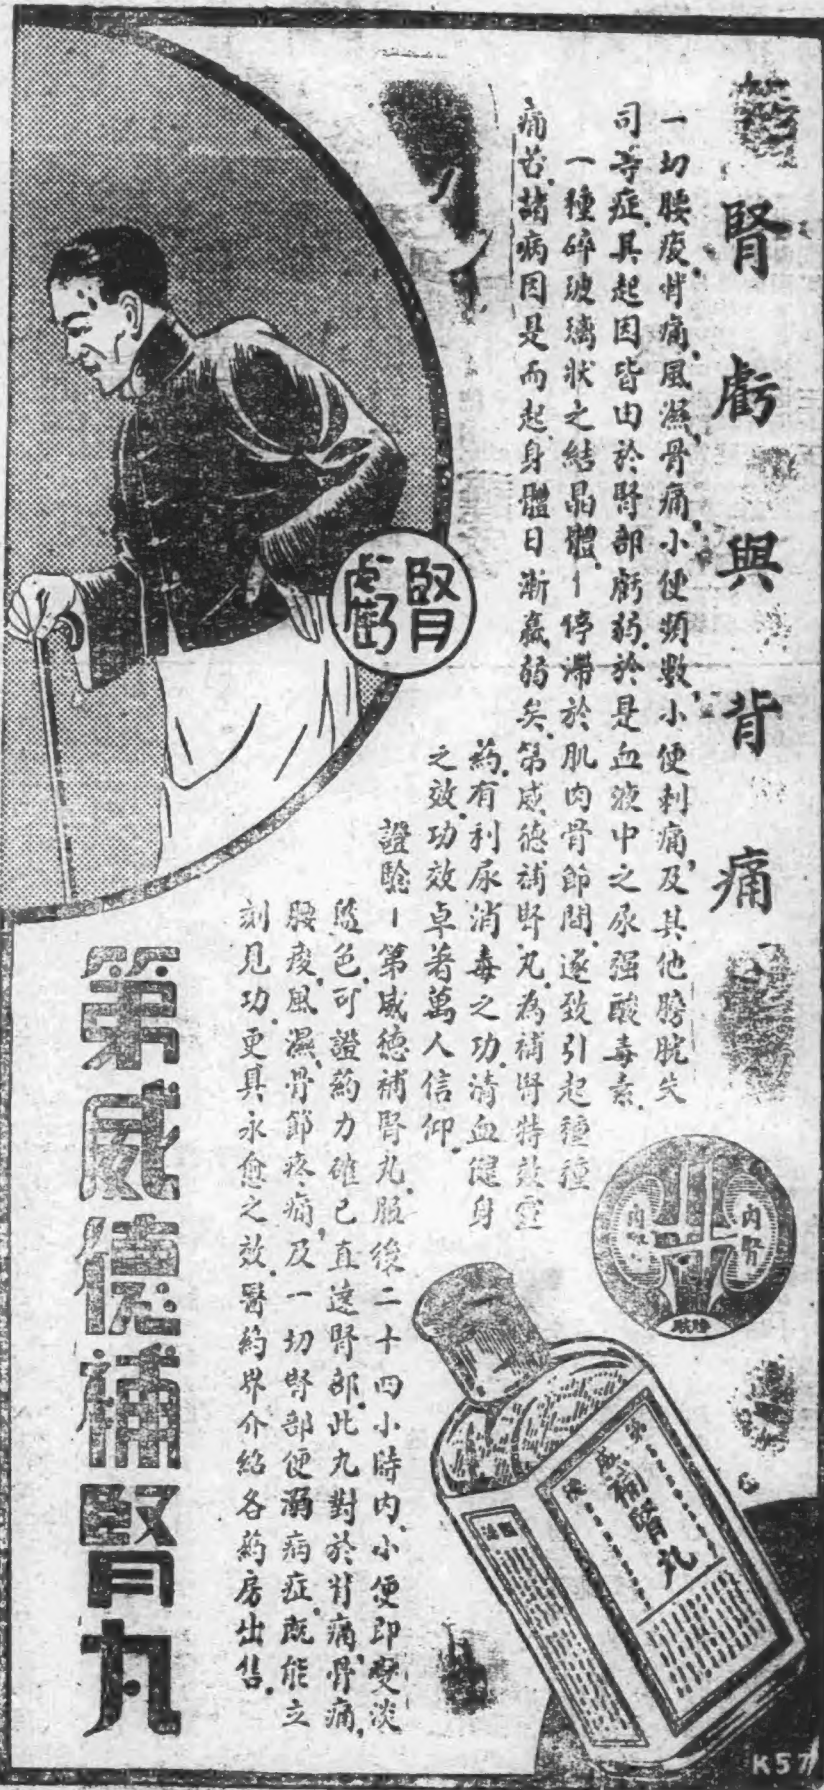 腎虧與背痛
一切腰痠背痛，風濕骨痛，小便頻數，小便刺痛，及其他膀胱失
司等症，其起因皆由於腎部虧弱，於是血液中之尿强酸毒素，
一種碎玻璃狀之結晶體，—停滯於肌肉骨節間，遂致引起種種
痛苦，諸病因是而起，身體日漸羸弱矣，第威德補腎丸，為補腎特效靈
藥，有利尿消毒之功，清血健身
之效，功效卓著，萬人信仰，
證驗—第威德補腎丸，服後二十四小時內，小便即變淡
藍色，可證藥力確已直達腎部，此丸對於背痛，骨痛，
腰痠，風濕，骨節疼痛，及一切腎部便溺病症，既能立
刻見功，更具永愈之效，醫药界介紹各药房出售，
腎虧
第威德補腎丸
內腎
內腎
膀胱
第威德
補腎丸
K57